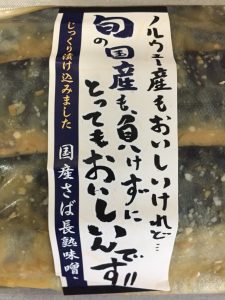 ノルウェー産もおいしいけれど…
旬の国産も負けずに
とってもおいしいんです!!
じっくり漬け込みました
国産さば長熟味噌